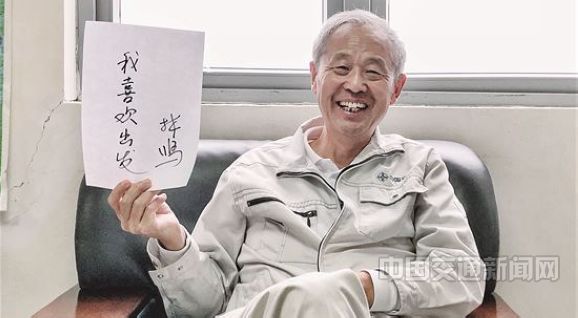 我喜欢出发
林鸣
中国交通新闻网